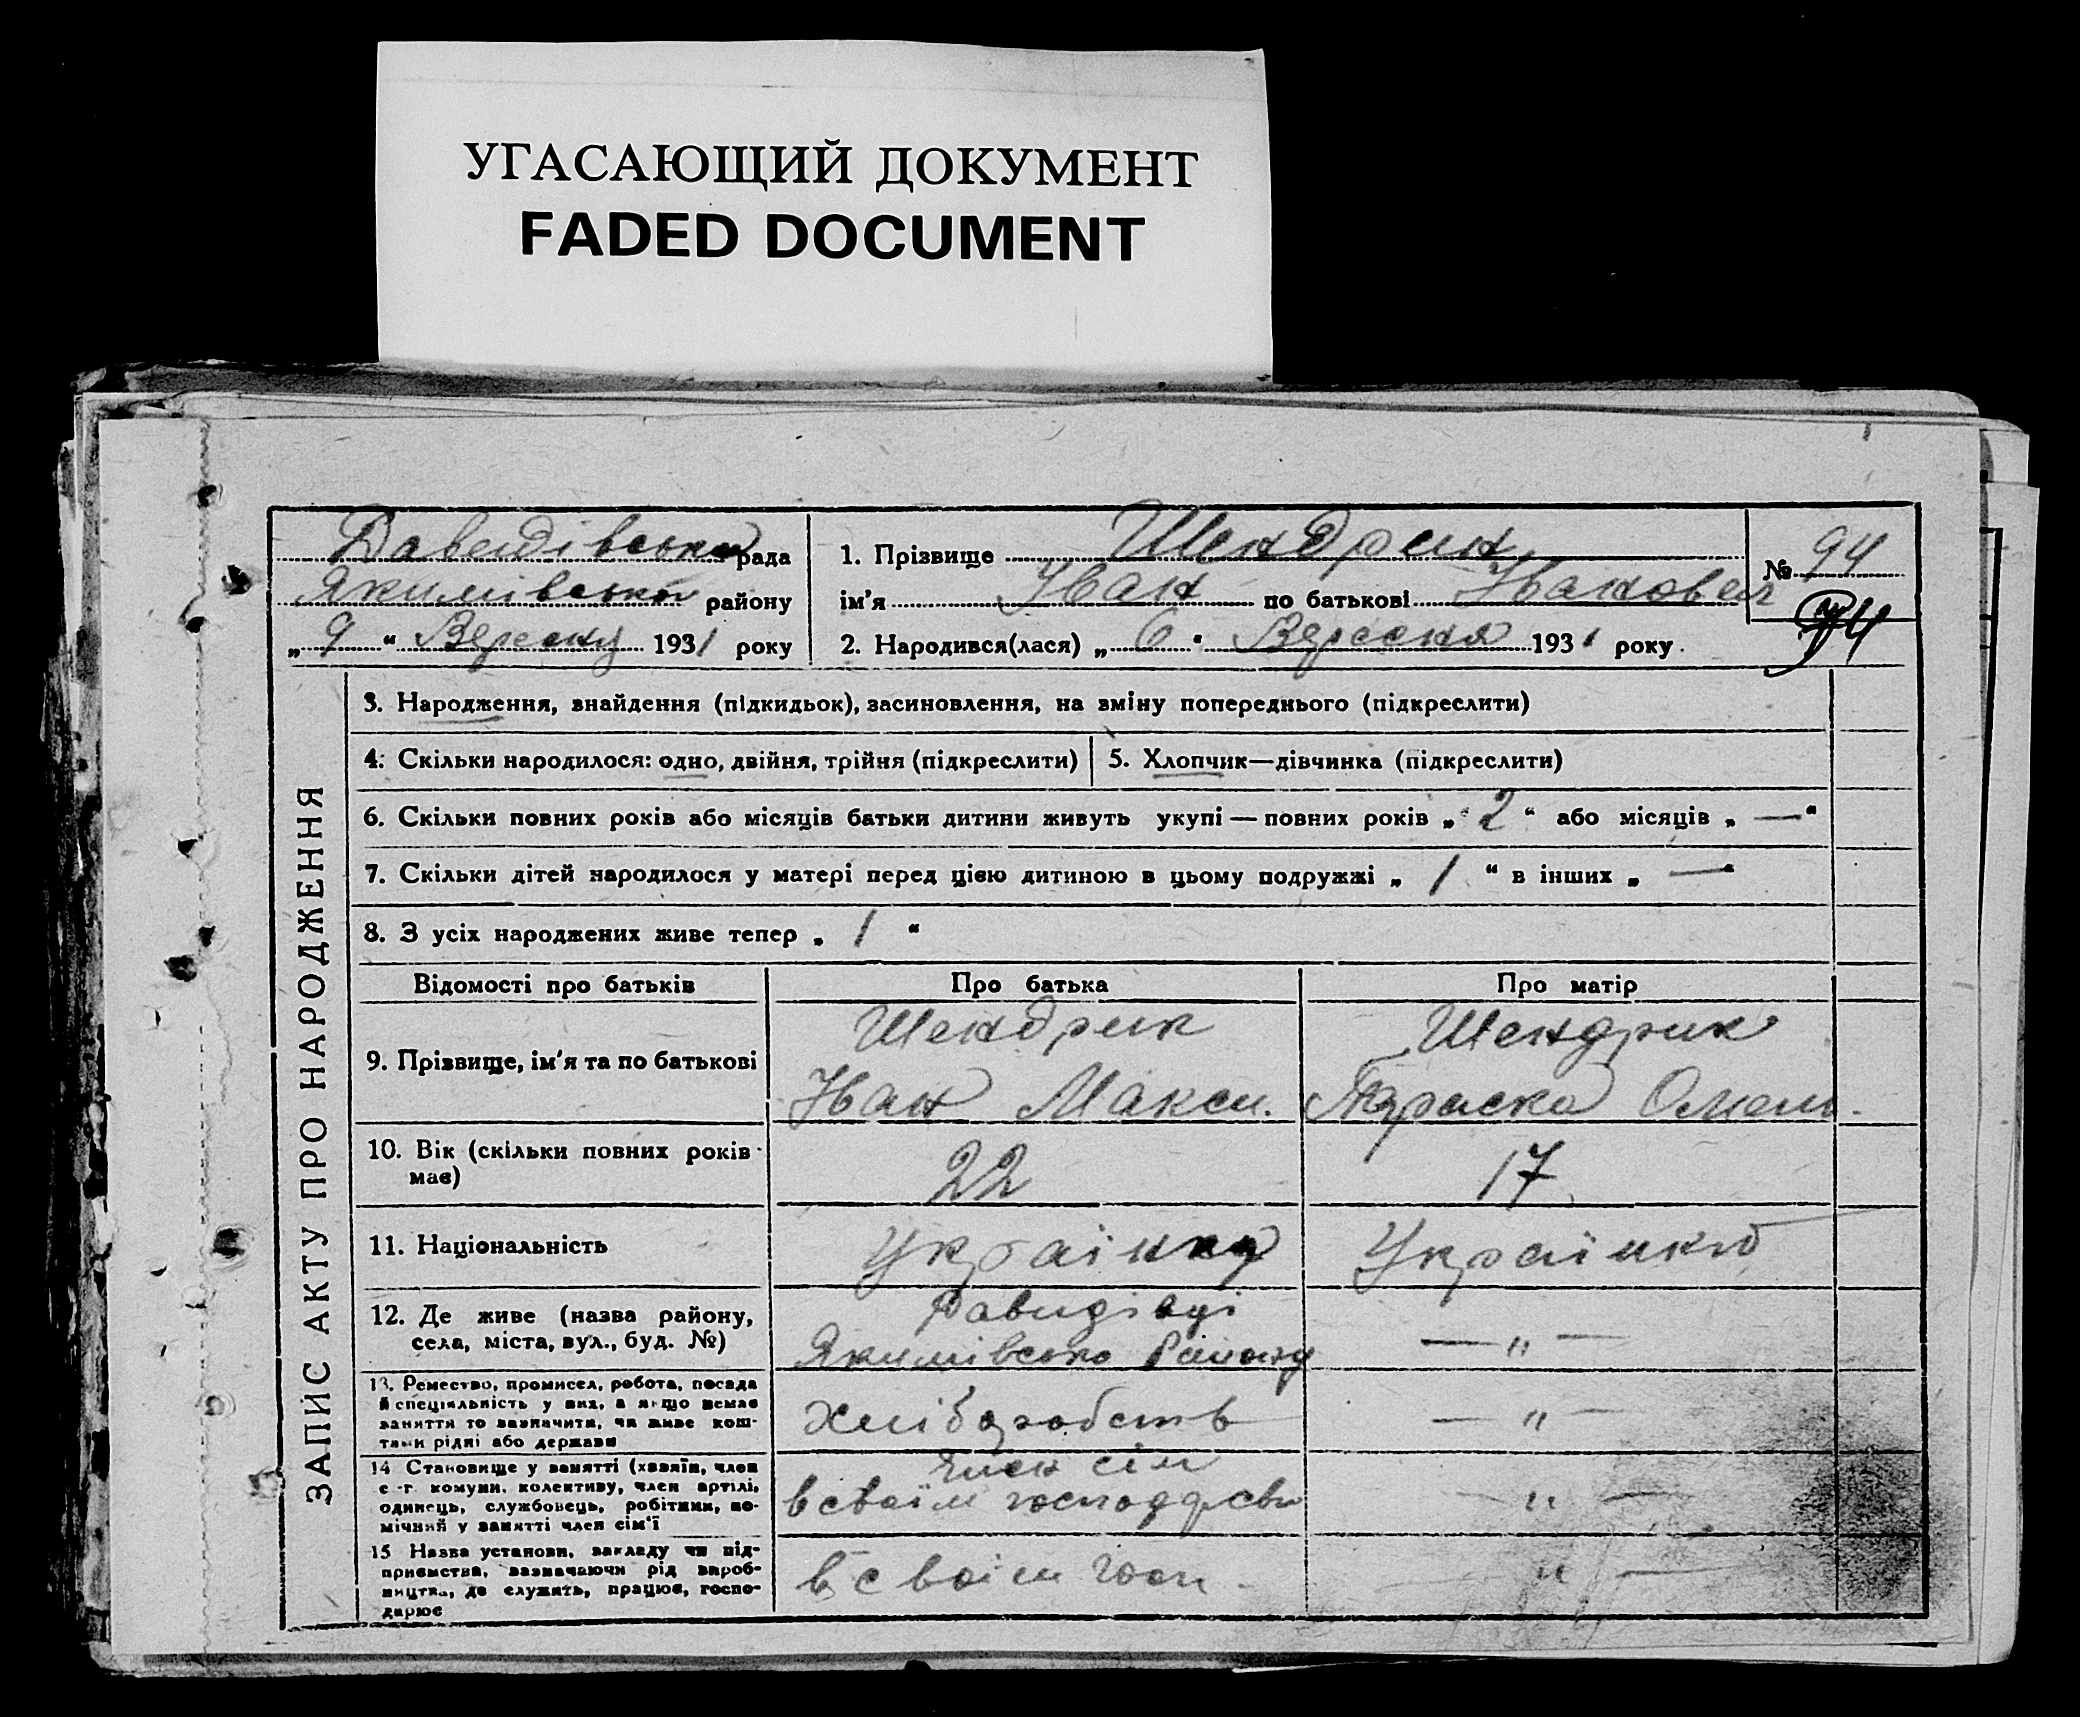 УГАСАЮЩИЙ ДОКУМЕНТ
FADED DOCUMENT
Давидівська рада
Якимівська району
„ 9 “ Вересня 1931 року
1. Прізвище Шендрик
ім'я Іван по батькові Іванович
2. Народився(лася) „ 6 “ Вересня 1931 року.
№ 94
94
ЗАПИС АКТУ ПРО НАРОДЖЕННЯ
3. Народження, знайдення (підкидьок), засиновлення, на зміну попереднього (підкреслити)
4. Скільки народилося: одно, двійня, трійня (підкреслити)
5. Хлопчик—дівчинка (підкреслити)
6. Скільки повних років або місяців батьки дитини живуть укупі — повних років „ 2 “ або місяців „ — “
7. Скільки дітей народилося у матері перед цією дитиною в цьому подружжі „ 1 “ в інших „ — “
8. З усіх народжених живе тепер „ 1 “
Відомості про батьків Про батька Про матір
9. Прізвище, ім'я та по батькові
Шендрик
Іван Макси.
Шендрик
Параска Омель.
10. Вік (скільки повних років
має)
22
17
11. Національність
Українец
Українка
12. Де живе (назва району,
села, міста, вул., буд. №)
Давидівці
Якимівсько Району
— „ —
13. Ремество, промисел, робота, посада
й спеціяльність у них, а якщо немає
заняття то зазначити, чи живе кош-
тами рідні або держави
Хліборобств
— „ —
14 Становище у занятті (хазяїн, член
с.-г. комуни, колективу, член артілі,
одинець, службовець, робітник, по-
мічний у занятті член сім'ї
член сім
в своїм господрсви
— „ —
15 Назва установи, закладу чи під-
приємства, зазначаючи рід вироб-
ництва, де служить, працює, госпо-
дарює
в своїм госп.
„ —